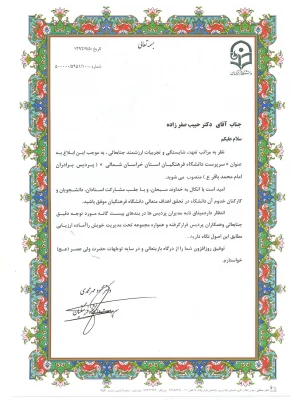 بسمه تعالی
جناب آقای دکتر حبیب صفرزاده
سلام علیکم
نظر به مراتب تعهد، شایستگی و تجربیات ارزشمند جنابعالی، به موجب این ابلاغ به
عنوان «سرپرست دانشگاه فرهنگیان استان خراسان شمالی» (پردیس برادران
امام محمد باقر ع) منصوب می شوید.
امید است با اتکال به خداوند سبحان، و با جلب مشارکت استادان، دانشجویان و
کارکنان خدوم آن دانشگاه در تحقق اهداف متعالی دانشگاه فرهنگیان موفق باشید.
انتظار دارد میثاق نامه مدیران پردیس ها در بندهای بیست گانه مورد توجه دقیق
جنابعالی و همکاران پردیس قرار گرفته و همواره مجموعه تحت مدیریت خویش را آماده ارزیابی
مطابق این اصول نگاه دارید.
توفیق روزافزون شما را از درگاه باریتعالی و در سایه توجهات حضرت ولی عصر (عج)
خواستارم.
محمود مهرمحمدی